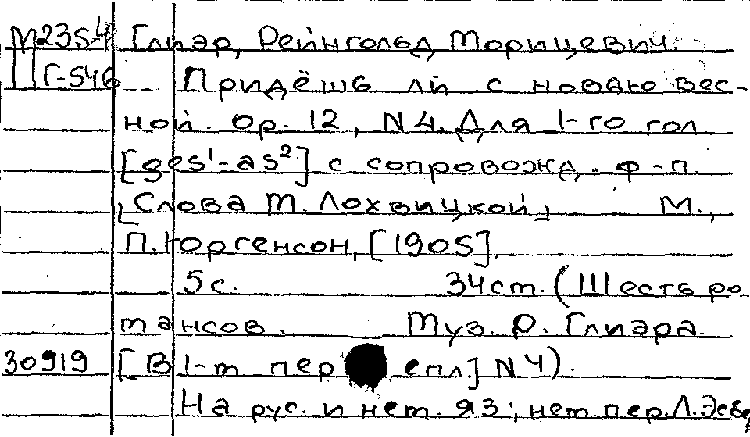 М235-4 Глиэр, Рейнгольд Морицевич.
Г-546 Придёшь ли с новою вес-
ной. ор. 12, N4. Для 1-го гол
[ges¹-as²] с сопровожд. ф-п.
Слова М. Лохвицкой, М.,
П. Юргенсон, [1905].
5с. 34ст. (Шесть ро
мансов. Муз. Р. Глиэра
30919 [В 1-м пер епл] N4).
На рус. и нем. яз; нем пер. Л. Эсбе